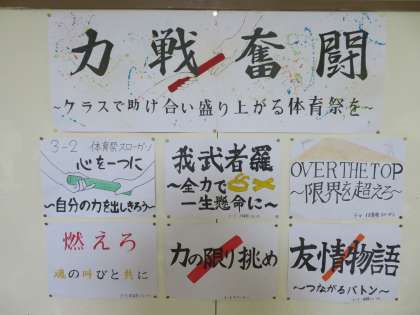 力戦奮闘
~クラスで助け合い盛り上がる体育祭を~
3-2 体育祭スローガン
心を一つに
~自分の力を出しきろう~
我武者羅
~全力で
一生懸命に~
OVER THE TOP
~限界を超えろ~
燃えろ
魂の叫びと共に
力の限り挑め
友情物語
~つながるバトン~